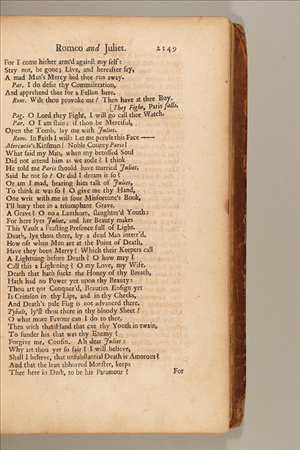 Romeo and Juliet. 2149
For I come hither arm'd against my self:
Stay not, be gone; Live, and hereafter say,
A mad Man's Mercy bid thee run away.
Par. I do defie thy Commiseration,
And apprehend thee for a Fellon here.
Rom. Wilt thou provoke me? Then have at thee Boy.
[They Fight, Paris falls.
Pag. O Lord they Fight, I will go call the Watch.
Par. O I am slain; if thou be Merciful,
Open the Tomb, lay me with Juliet.
Rom. In Faith I will: Let me peruse this Face——
Mercutio's Kinsman! Noble County Paris!
What said my Man, when my betossed Soul
Did not attend him as we rode? I think
He told me Paris should have married Juliet.
Said he not so? Or did I dream it so?
Or am I mad, hearing him talk of Juliet,
To think it was so? O give me thy Hand,
One writ with me in sour Misfortune's Book,
I'll bury thee in a triumphant Grave.
A Grave? O no a Lanthorn, slaughter'd Youth:
For here lyes Juliet, and her Beauty makes
This Vault a Feasting Presence full of Light.
Death, lye thou there, by a dead Man interr'd.
How oft when Men are at the Point of Death,
Have they been Merry? Which their Keepers call
A Lightning before Death? O how may I
Call this a Lightning? O my Love, my Wife,
Death that hath suckt the Honey of thy Breath,
Hath had no Power yet upon thy Beauty:
Thou art not Conquer'd, Beauties Ensign yet
Is Crimson in thy Lips, and in thy Cheeks,
And Death's pale Flag is not advanced there.
Tybalt, ly'st thou there in thy bloody Sheet?
O what more Favour can I do to thee,
Then with that Hand that cut thy Youth in twain,
To sunder his that was thy Enemy?
Forgive me, Cousin. Ah dear Juliet:
Why art thou yet so fair? I will believe,
Shall I believe, that unsubstantial Death is Amorous?
And that the lean abhorred Monster, keeps
Thee here in Dark, to be his Paramour?
For